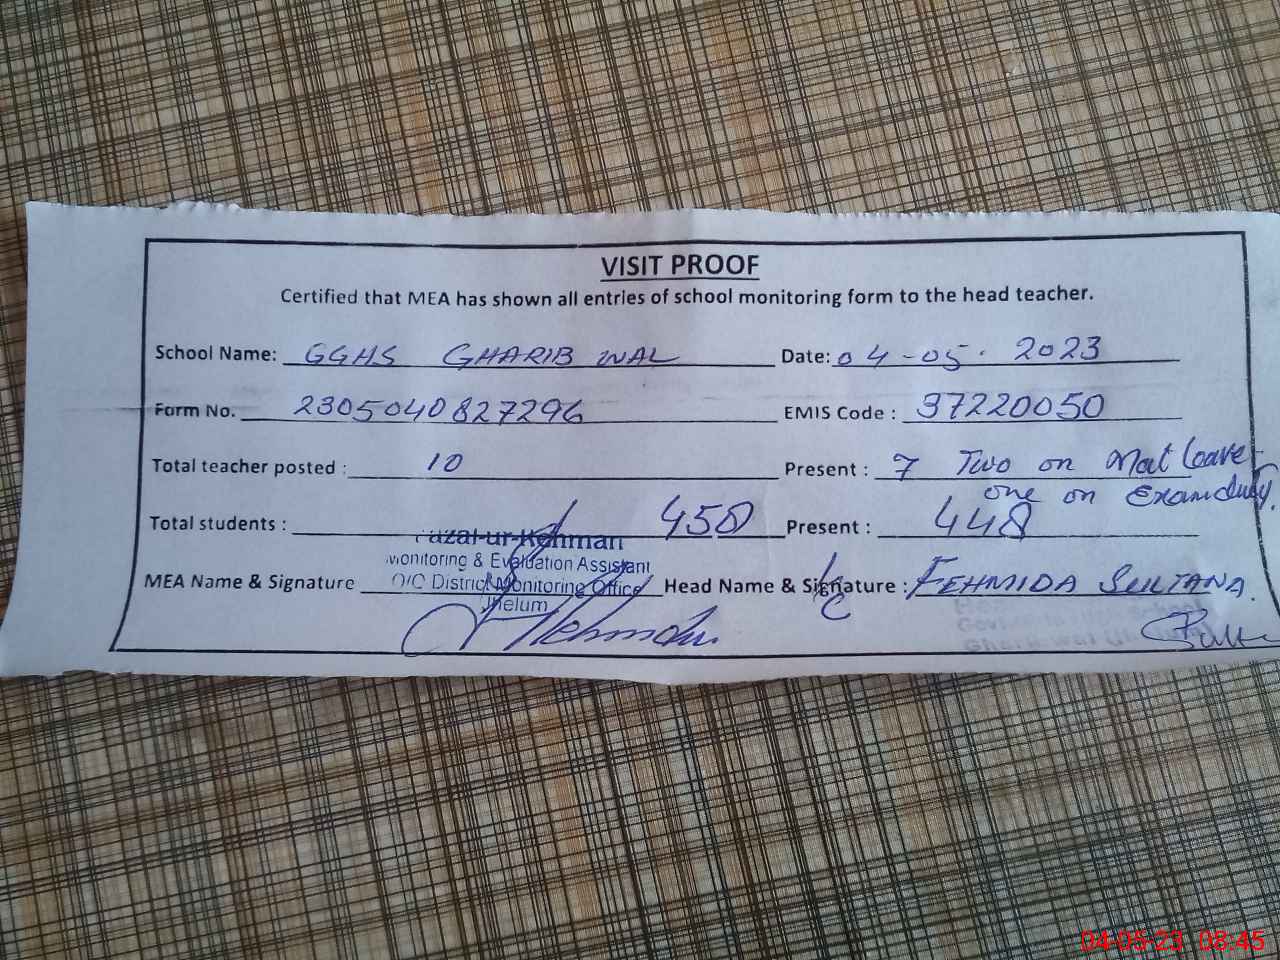 VISIT PROOF
Certified that MEA has shown all entries of school monitoring form to the head teacher.
School Name: GGHS GHARIB WAL Date: 04-05-2023
Form No. 2305040827296 EMIS Code : 37220050
Total teacher posted : 10 Present : 7 Two on Mat leave
one on Exam duty.
Total students : 458 Present : 448
Fazal-ur-Rehman
Monitoring & Evaluation Assistant
O/O District Monitoring Office
Jhelum
MEA Name & Signature Head Name & Signature : FEHMIDA SULTANA.
04-05-23 08:45